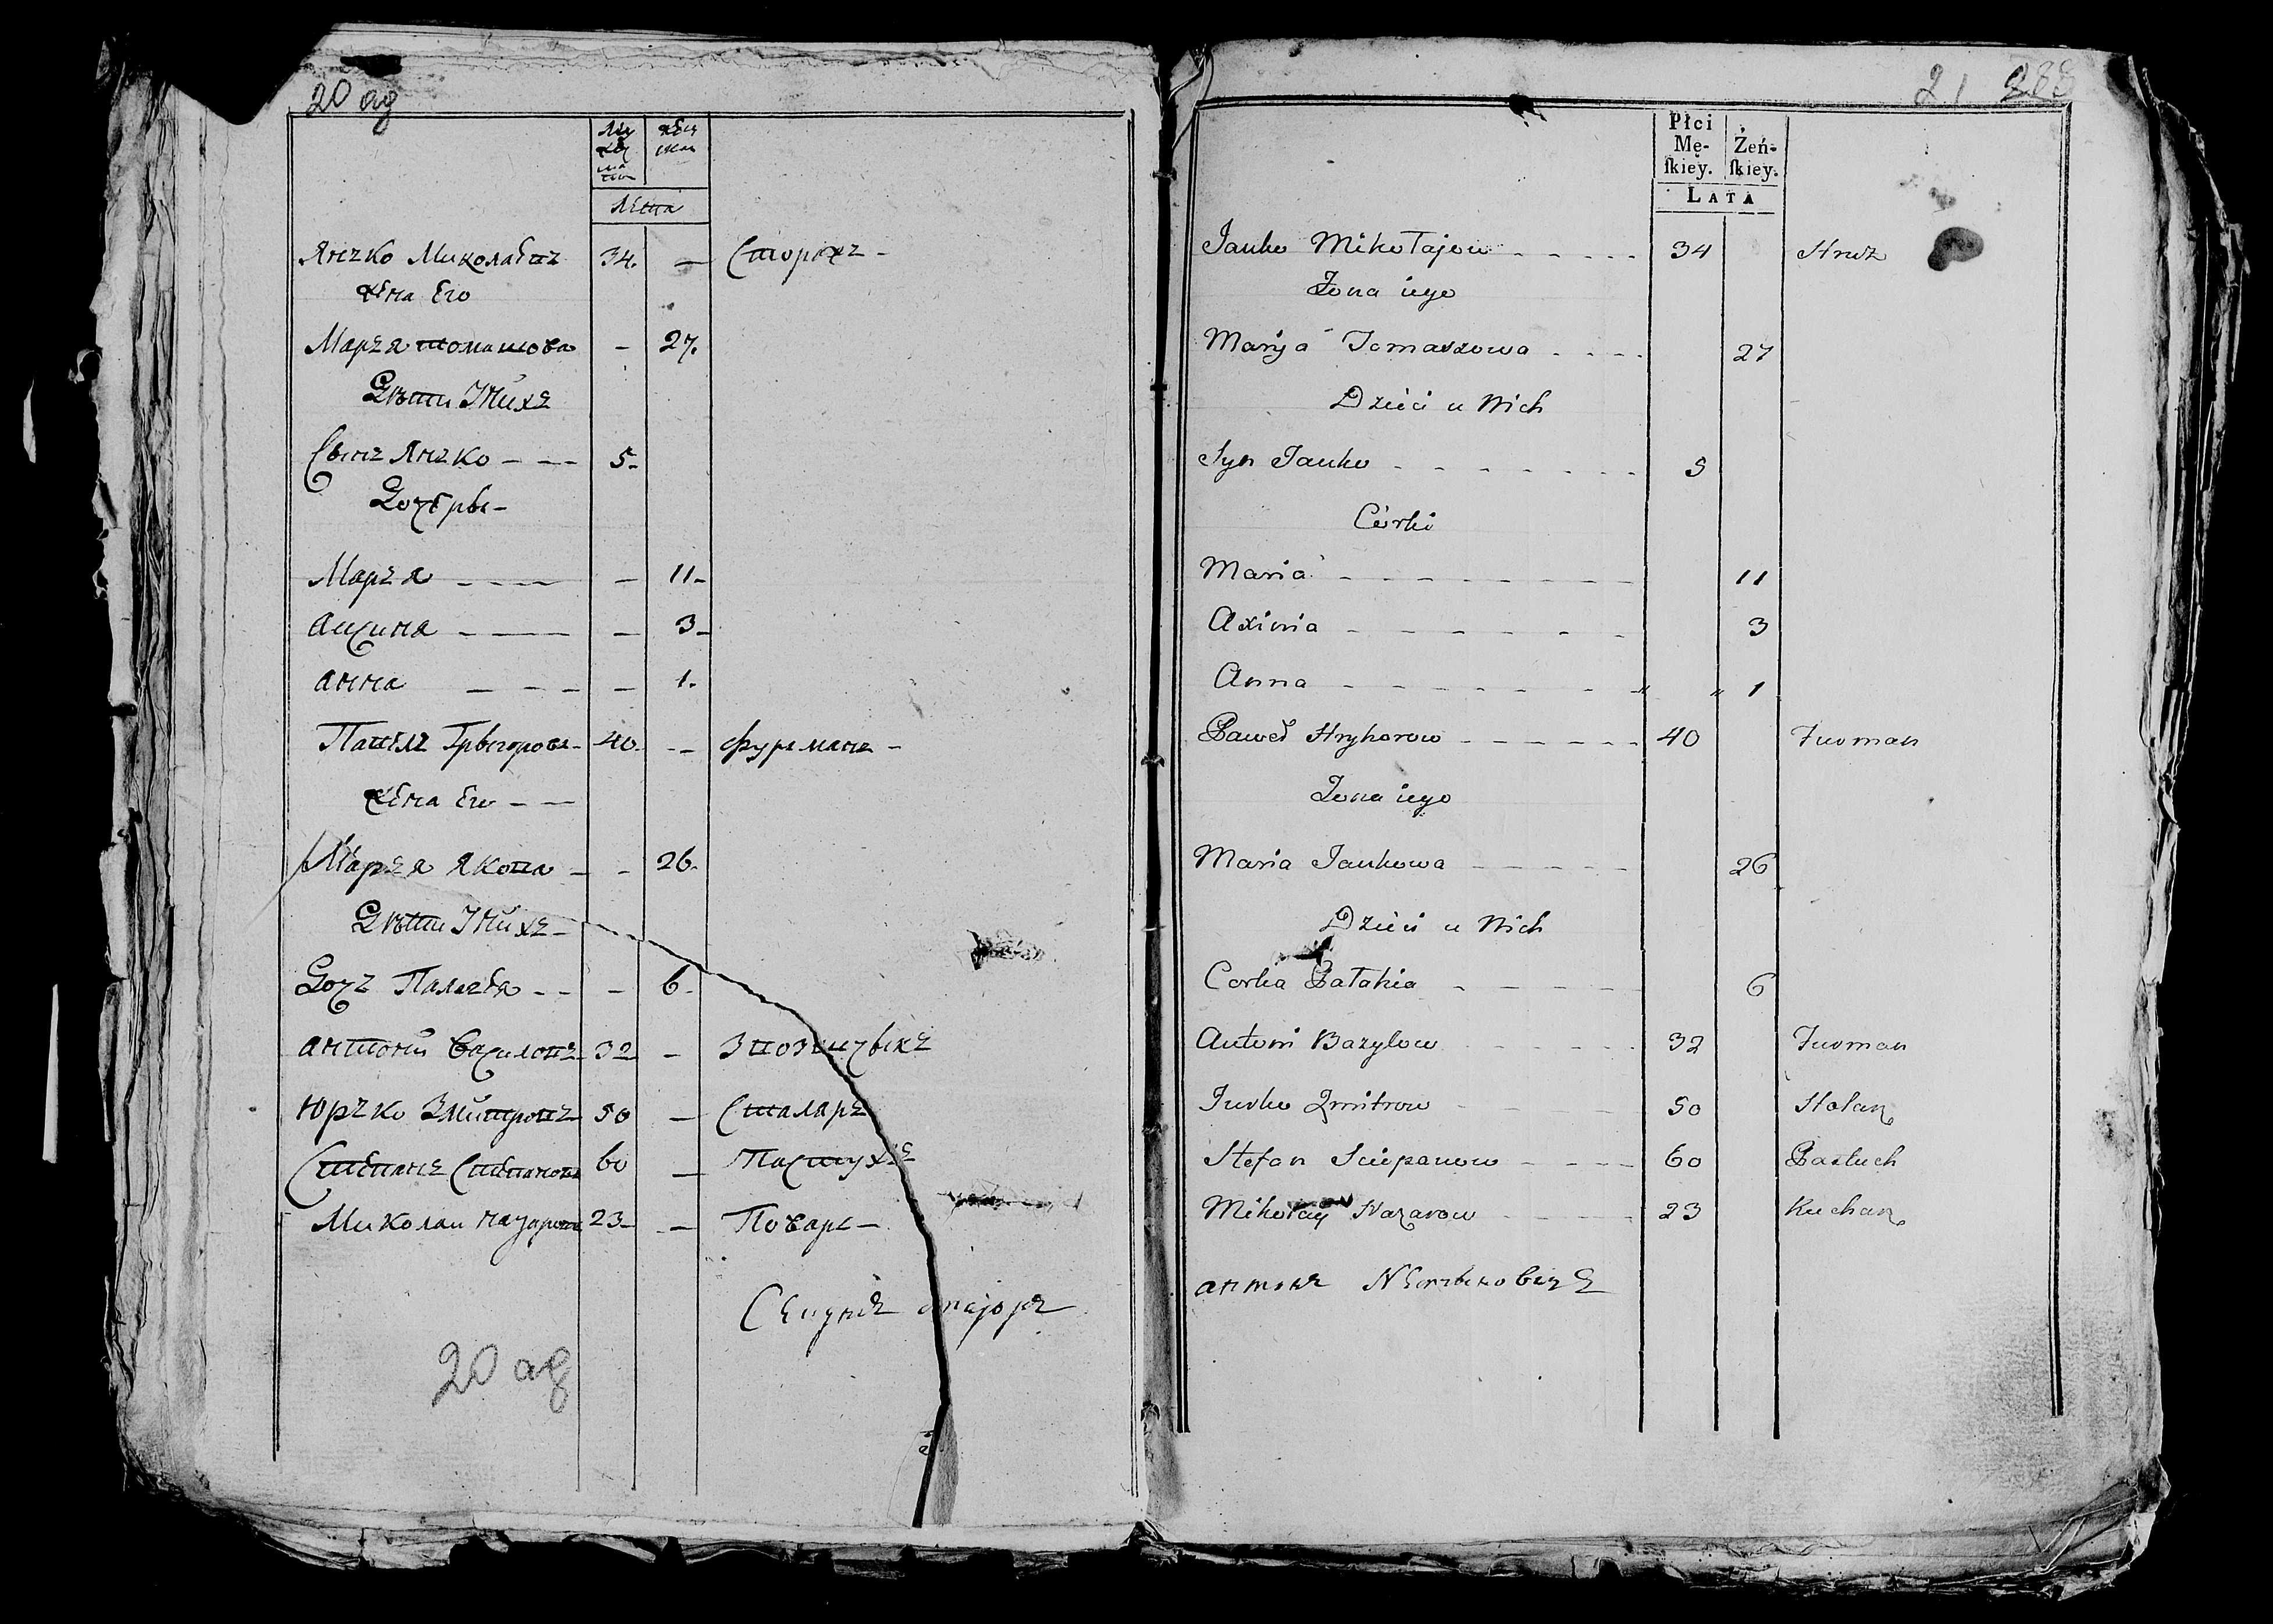 20 ag
Му
жес
ка
жен
ска
Лета
Янъко Миколаевъ 34. — Сторожъ -
жена Его
Маръя томашова - 27.
Дѣти Унихъ
Сынъ Янъко - - - 5-
Дочеры-
Маръя - - - - 11-
аксиня - - - - 3-
анна - - - - 1.
Павелъ Грыгоровъ- 40. -- фурманъ -
жена Его - -
Маръя Якова - - 26.
Дѣти Унихъ -
Дочъ Палагея - - - 6-
антони Василовъ 32 -
Юръко Змитровъ 50 — Сталаръ
Степанъ Степановъ 60 — Пастухъ
Миколаи назаровъ 23- — Поваръ -
20 ag
21 288
Płci
Mę-
ſkiey.
Żeń-
ſkiey.
LATA
Janko Mikołajow - - - - - 34 Struż
Żona iego
Marya Tomaszowa - - - - 27
Dzieci u Nich
Syn Janko - - - - - - - 5
Córki
Maria - - - - - - - - 11
Axinia - - - - - - 3
Anna - - - - - - - " " 1
Paweł Hryhorow - - - - - - 40 Furman
Żona iego
Maria Jankowa - - - - - 26
Dzieci u Nich
Corka Pałahia - - - - 6
Antoni Bazylow - - - - - 32 Furman
Jurko Zmitrow - - - 50 Stolarz
Stefan Sciepanow - - - - 60 Pastuch
Mikołay Nazarow - - - - 23 Kucharz
антонъ